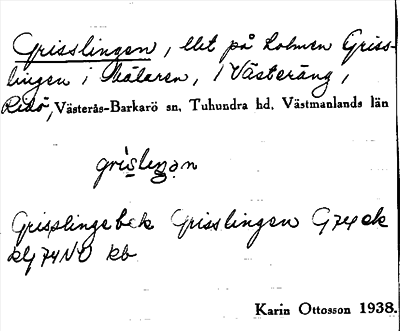 Grisslingen, llet på holmen Griss-
lingen i Mälaren, i Västeräng,
Ridö, Västerås-Barkarö sn, Tuhundra hd. Västmanlands län
grìslengən
Grisslinge bck Grisslingen G74 ek
74 NO kb
Karin Ottosson 1938.